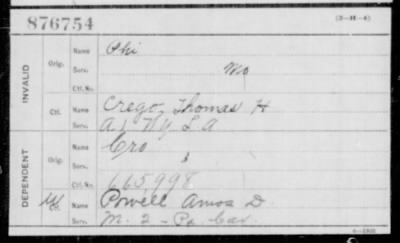 876754 (3-H-4)
INVALID
Orig. Name Phi
Serv. Mo
Ctf. No.
Ctf. Name Crego, Thomas H
Serv. A 1 NY L A
DEPENDENT
Orig. Name Cro
Serv.
Ctf. No. 665998
Name Powell Amos D.
Serv. M. 2 - Pa Cav.